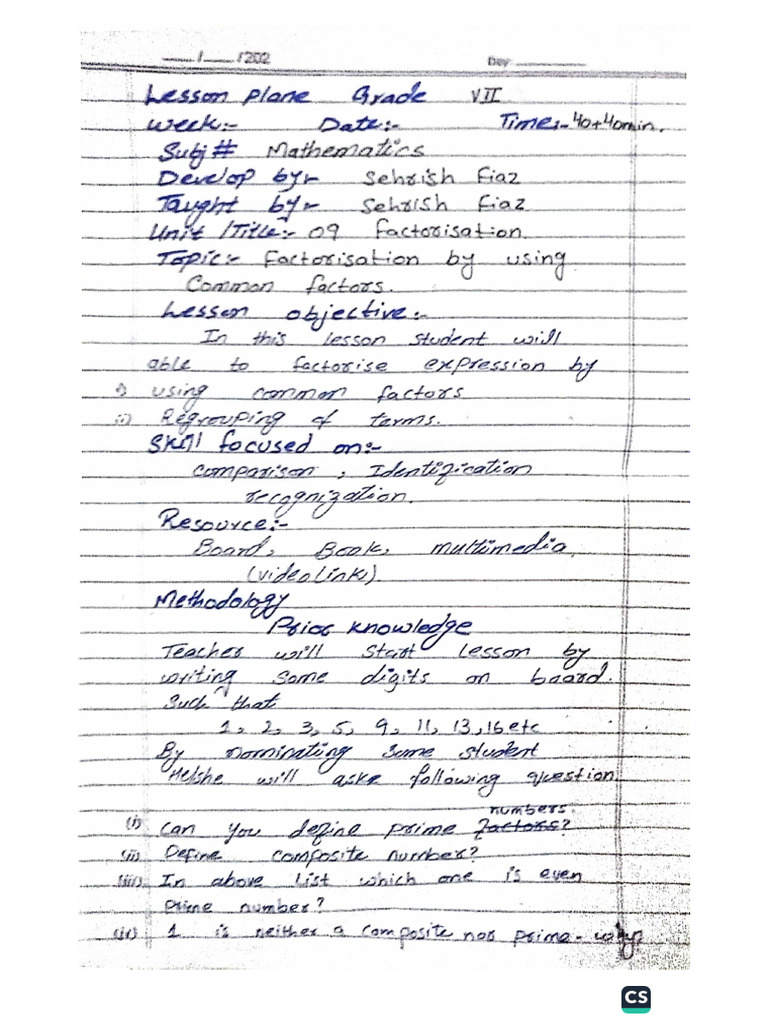 __/__/202 Day ______
Lesson plane Grade VII
Week:- Date:- Time:- 40+40min.
Subj # Mathematics
Develop by:- Sehrish Fiaz
Taught by:- Sehrish Fiaz
Unit /Title:- 09 factorisation.
Topic:- factorisation by using
Common factors.
Lesson objective:-
In this lesson student will
able to factorise expression by
i) using common factors
ii) Regrouping of terms.
Skill focused on:-
comparison, Identification
recognization.
Resource:-
Board, Book, multimedia
(video link).
Methodology
Prior knowledge
Teacher will start lesson by
writing some digits on board.
Such that
1, 2, 3, 5, 9, 11, 13, 16 etc
By nominating some student
He/she will aske following question
numbers.
(i) Can you define prime factors?
(ii) Define composite number?
(iii) In above list which one is even
prime number?
(iv) 1 is neither a composite nor prime- why?
CS